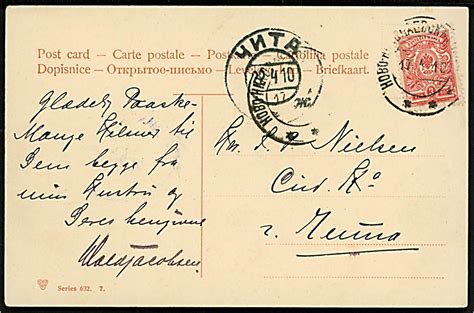 Post card — Carte postale — Cartolina postale
Dopisnice — Открытое письмо — Briefkaart.
ЧИТА
22 4 10
17
НОВО-НИКОЛАЕВСК
Glædelig Paaske.
Mange Hilsner til
Dem begge fra
min Hustru og
Deres hengivne
Valdjacobsen
Nielsen
Сиб. К°
г. Чита
Series 632. 7.